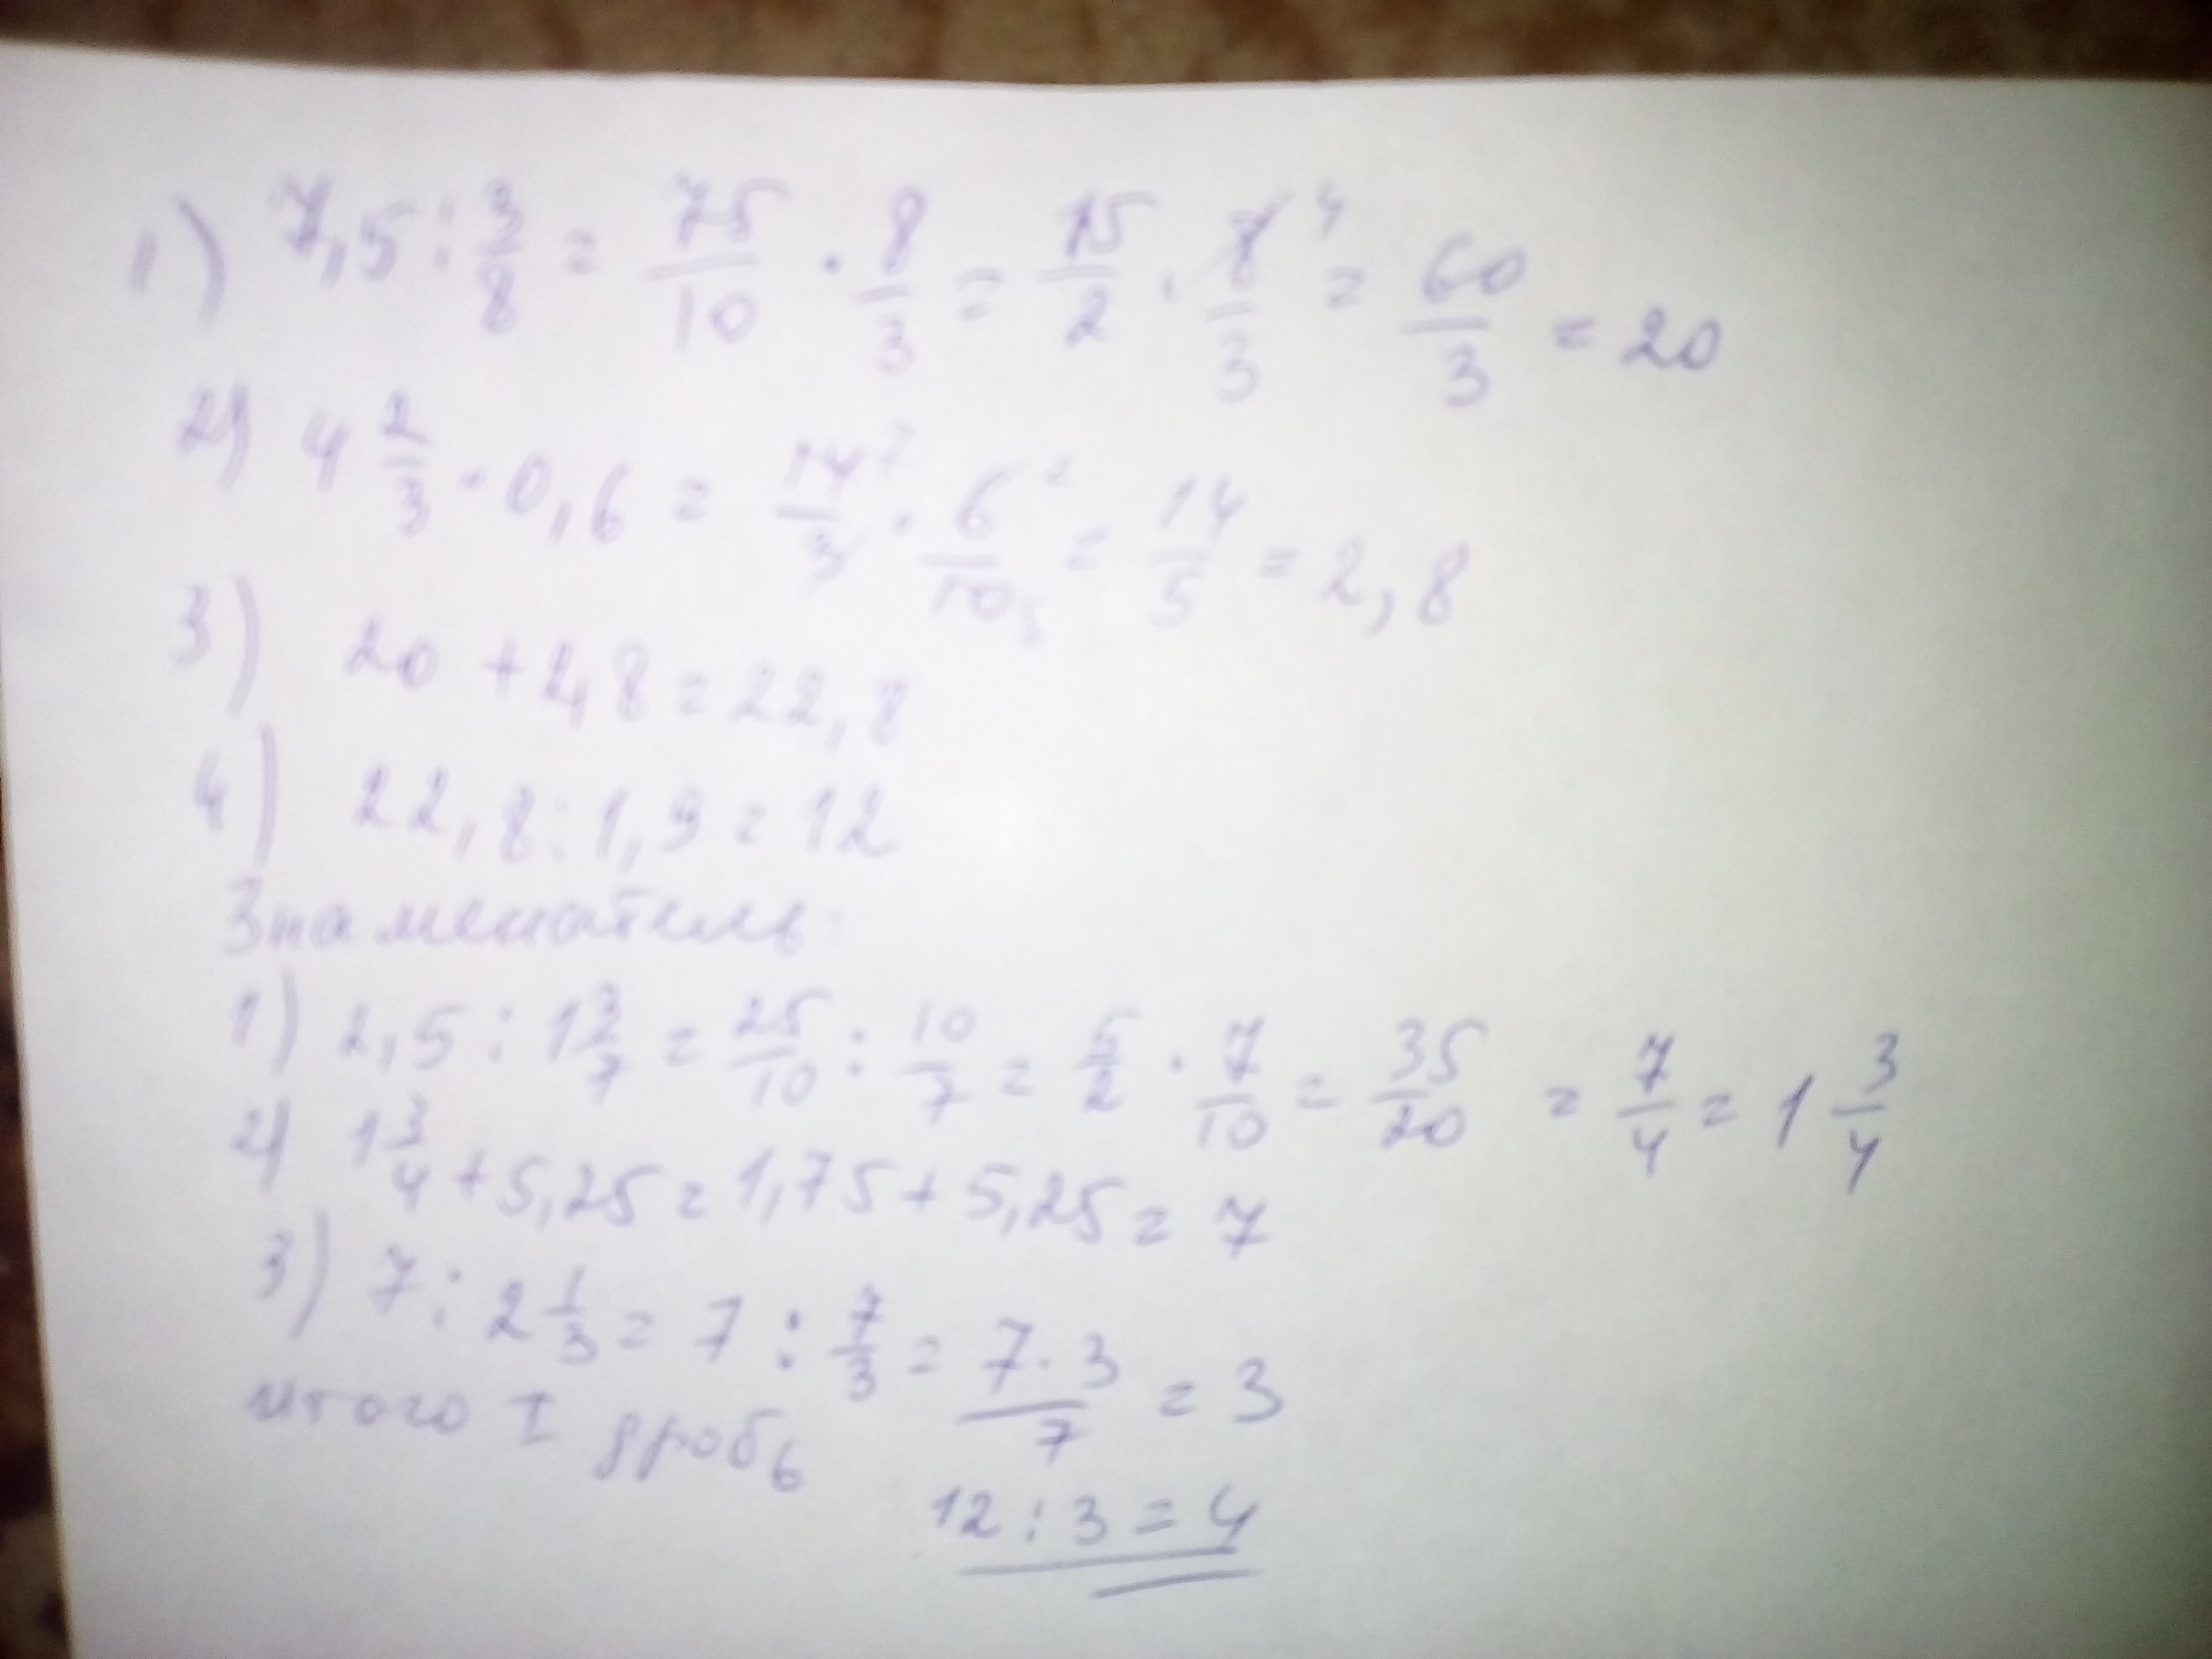 1) 7,5 : 3/8 = 75/10 · 8/3 = 15/2 · 8/3 4 = 60/3 = 20
2) 4 2/3 · 0,6 = 14/3 · 6/10 5 = 14/5 = 2,8
3) 20 + 2,8 = 22,8
4) 22,8 : 1,9 = 12
Знаменатель:
1) 2,5 : 1 3/7 = 25/10 : 10/7 = 5/2 · 7/10 = 35/20 = 7/4 = 1 3/4
2) 1 3/4 + 5,25 = 1,75 + 5,25 = 7
3) 7 : 2 1/3 = 7 : 7/3 = 7·3/7 = 3
итого I дробь
12 : 3 = 4